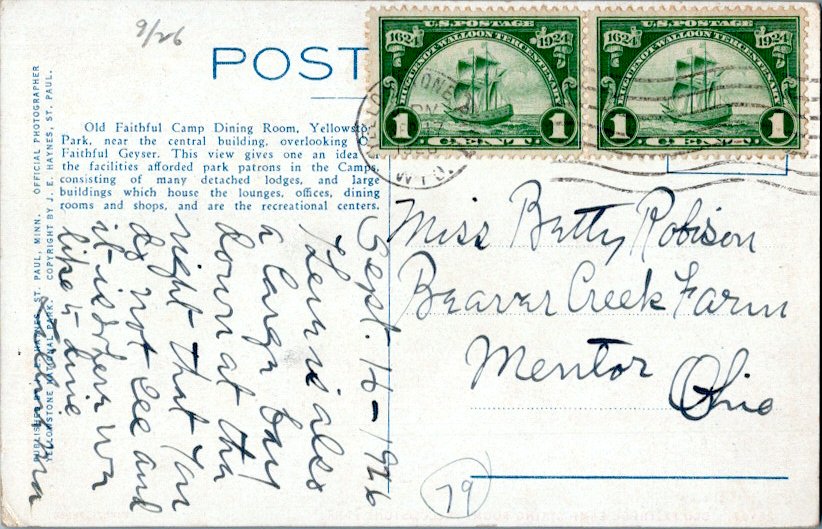 9/26
POST
U.S. POSTAGE
1624 1924
HUGUENOT-WALLOON TERCENTENARY
1 1
CENT
U.S. POSTAGE
1624 1924
HUGUENOT-WALLOON TERCENTENARY
1 1
CENT
Old Faithful Camp Dining Room, Yellowsto
Park, near the central building, overlooking O
Faithful Geyser. This view gives one an idea
the facilities afforded park patrons in the Camps,
consisting of many detached lodges, and large
buildings which house the lounges, offices, dining
rooms and shops, and are the recreational centers.
OFFICIAL PHOTOGRAPHER
ST. PAUL, MINN.
YELLOWSTONE NATIONAL PARK. COPYRIGHT BY J. E. HAYNES, ST. PAUL.
Miss Betty Robison
Beaver Creek Farm
Mentor
Ohio
Sept. 16 - 1926
There is also
a large
down at the
right that you
do not see and
it is where we
like to dine
79